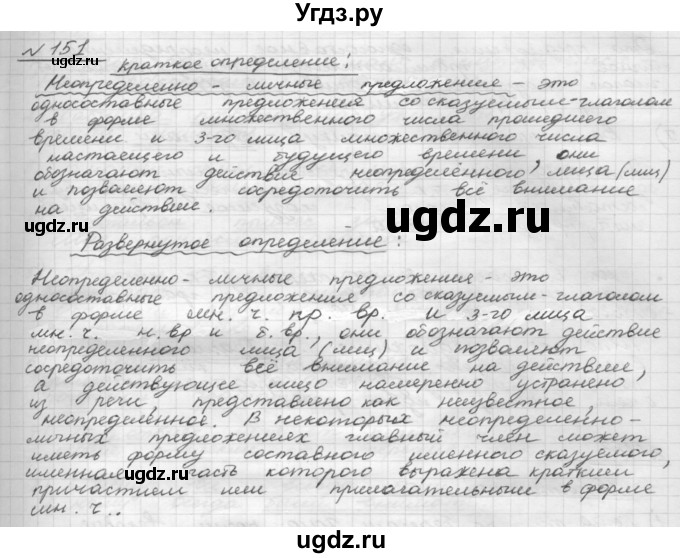 Угдз.ру
№ 151
краткое определение:
Неопределенно - личные предложения - это
односоставные предложения со сказуемым-глаголом
в форме множественного числа прошедшего
времени и 3-го лица множественного числа
настоящего и будущего времени, они
обозначают действие неопределённого лица (лиц)
и позволяют сосредоточить всё внимание
на действие.
ugdz.ru
ugdz.ru
Развернутое определение:
Неопределенно- личные предложения - это
односоставные предложения со сказуемым-глаголом
в форме мн. ч. пр. вр. и 3-го лица
мн. ч. н. вр и б. вр., они обозначают действие
неопределенного лица (лиц) и позволяют
сосредоточить всё внимание на действие,
а действующее лицо намеренно устранено
из речи, представлено как неизвестное,
неопределённое. В некоторых неопределенно-
личных предложениях главный член может
иметь форму составного именного сказуемого,
именная часть которого выражена кратким
причастием или прилагательным в форме
мн. ч..
ugdz.ru
ugdz.ru
ugdz.ru
ugdz.ru